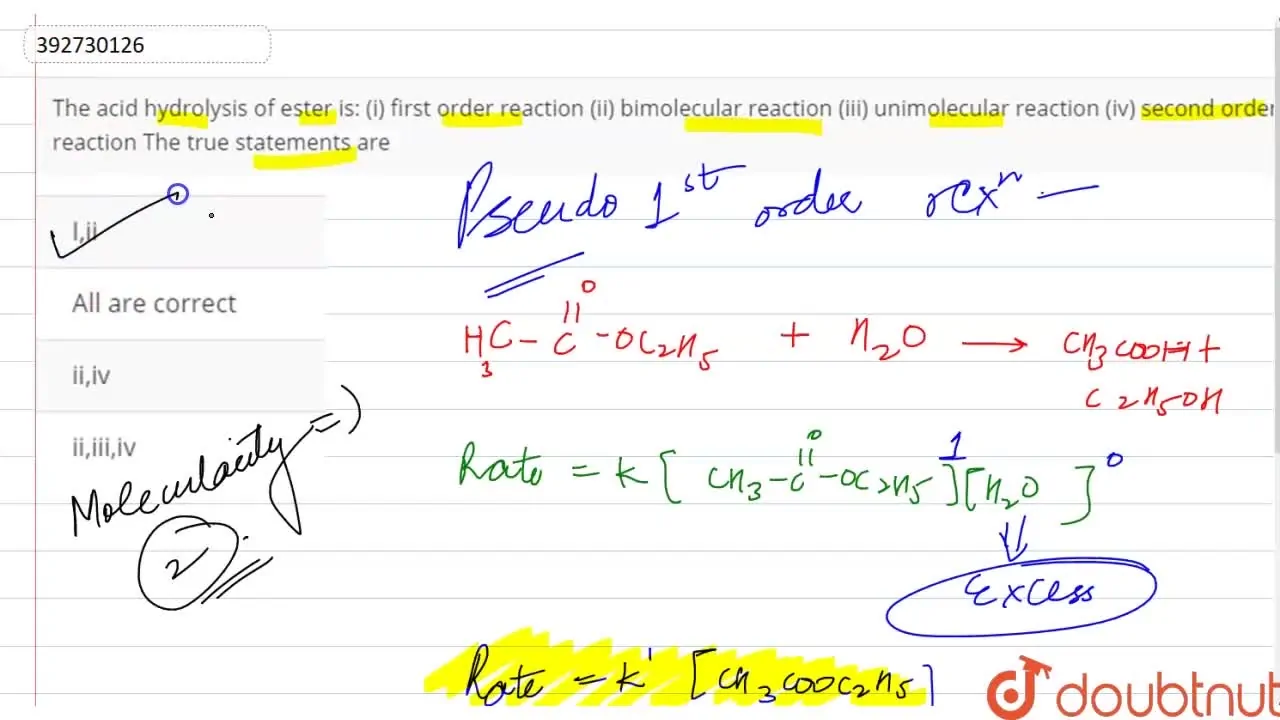 392730126
The acid hydrolysis of ester is: (i) first order reaction (ii) bimolecular reaction (iii) unimolecular reaction (iv) second order
reaction The true statements are
Pseudo 1st order rcxn —
I,ii
All are correct
ii,iv
ii,iii,iv
Molecularity =>
2
O
||
H3C - C - OC2H5 + H2O → CH3COOH +
C2H5OH
Rate = K [CH3-C-OC2H5]1 [H2O]0
O
||
Excess
Rate = K' [CH3COOC2H5]
doubtnut